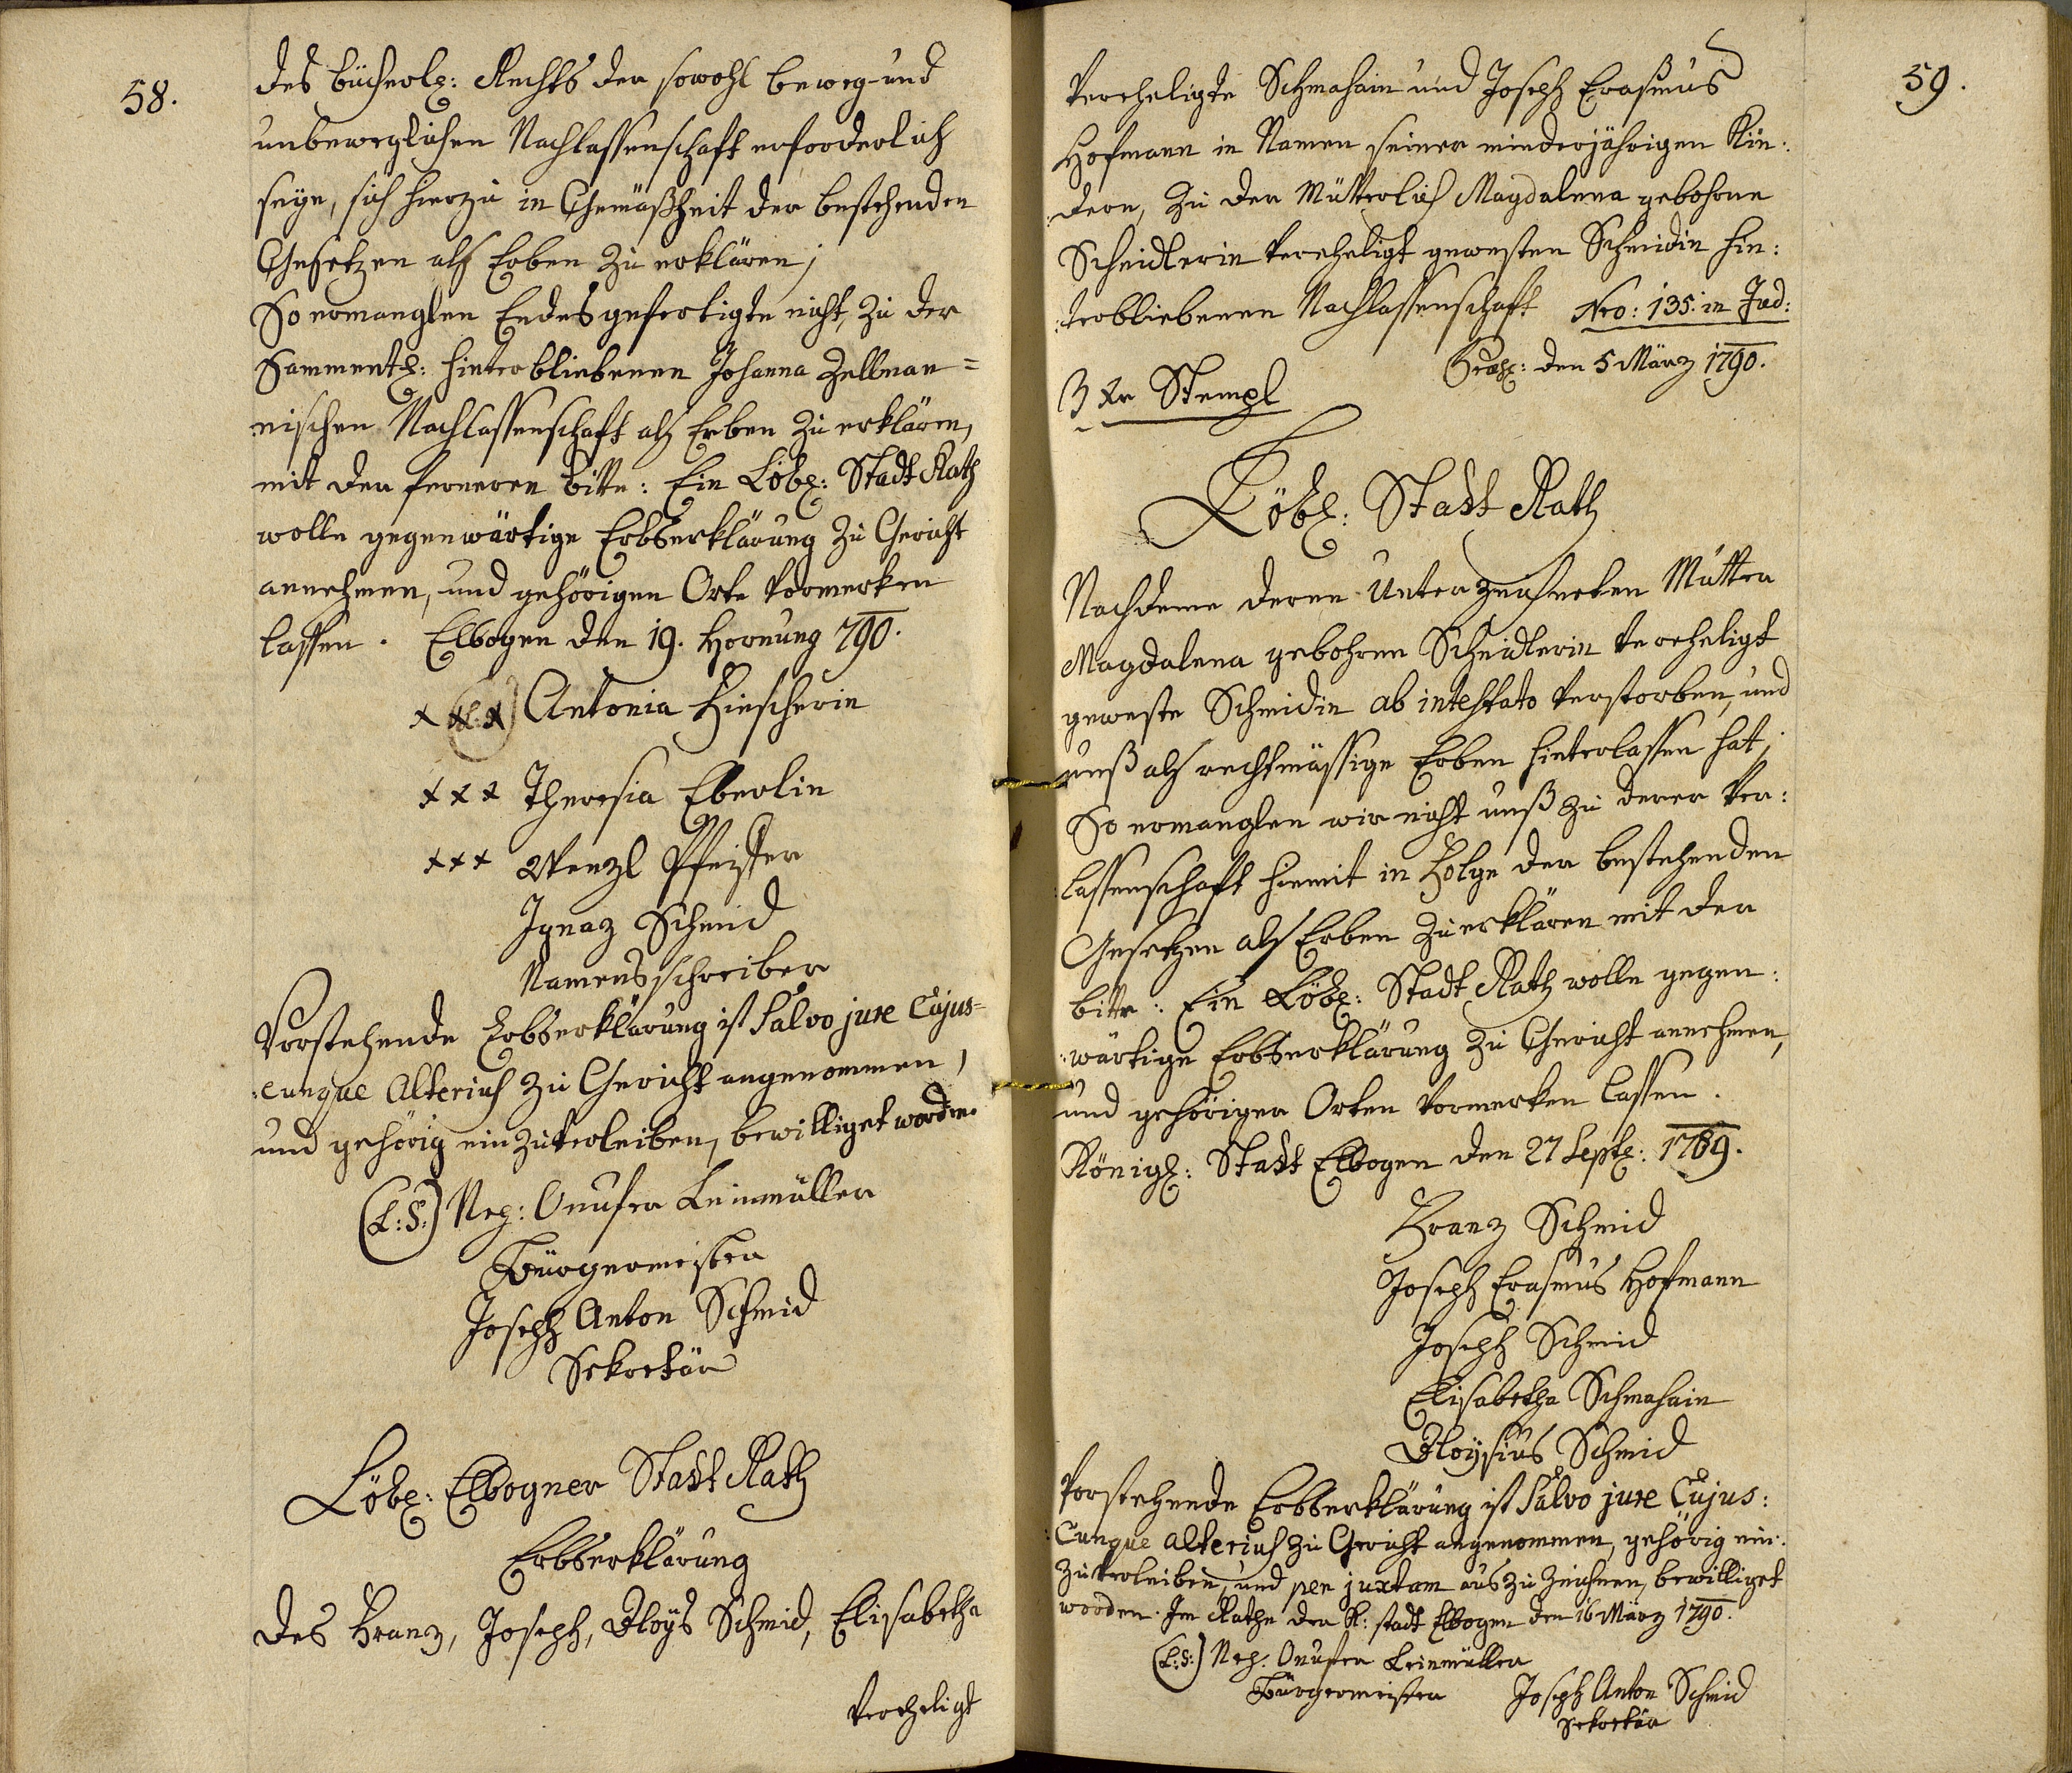 58.
des bücherl: Rechts der sowohl beweg- und
unbeweglichen Nachlassenschaft erforderlich
seye, sich hierzu in Gemäßheit der bestehenden
Gesetzen als Erben zu erklären;
So ermanglen Endesgefertigte nicht, zu der
Sammentl: hinterbliebenen Johanna Zellman=
nischen Nachlassenschaft als Erben zu erklären,
mit der ferneren bitte: Ein Löbl: Stadt Rath
wolle gegenwärtige Erbserklärung zu Gericht
annehmen, und gehörigen Orte vormerken
lassen. Elbogen den 19. Hornung 790.
Antonia Hirscherin
xxx Theresia Eberlin
xxx Wenzl Pfeister
Ignaz Schmid
Namensschreiber
Vorstehende Erbserklärung ist Salvo jure Cujus=
:cunque Alterius zu Gericht angenommen,
und gehörig einzuverleiben, bewilliget worden.
(L:S:) Nep: Onufer Leinmüller
Bürgermeister
Joseph Anton Schmid
Sekretär
Löbl: Elbogner Stadt Rath
Erbserklärung
des Franz, Joseph, Aloys Schmid, Elisabetha
Verehligt
59.
Vereheligte Schmahain und Joseph Erasmus
Hofmann in Namen seiner minderjährigen Kin:
:dern, zu der Mütterlich Magdalena gebohrne
Scheidlerin verehligt gewesten Schmidin hin:
:terbliebenen Nachlassenschaft Nro: 135: in Jud:
Præs: den 5 März 1790.
3 Xr Stempl
Löbl: Stadt Rath
Nachdeme deren Unterzeichneten Mutter
Magdalena gebohren Scheidlerin verehligt
geweste Schmidin ab intestato verstorben, und
unß als rechtmässige Erben hinterlassen hat;
So ermanglen wir nicht unß zu derer Ver:
:lassenschaft hiemit in Folge der bestehenden
Gesetzen als Erben zu erklären mit der
bitte: Ein Löbl: Stadt Rath wolle gegen:
:wärtige Erbserklärung zu Gericht annehmen,
und gehörigen Orten vormerken lassen.
Königl: Stadt Elbogen den 27 Septl: 1789.
Franz Schmid
Joseph Erasmus Hofmann
Joseph Schmid
Elisabetha Schmahain
Aloysius Schmid
Vorstehende Erbserklärung ist Salvo jure Cujus:
:Cunque alterius zu Gericht angenommen, gehörig ein:
zuverleiben, und per juxtam auszuzeichnen, bewilliget
worden. Im Rathe der K: stadt Elbogen den 16 März 1790.
(L:S:) Nep: Onufer Leinmüller
Bürgermeister Joseph Anton Schmid
Sekretär